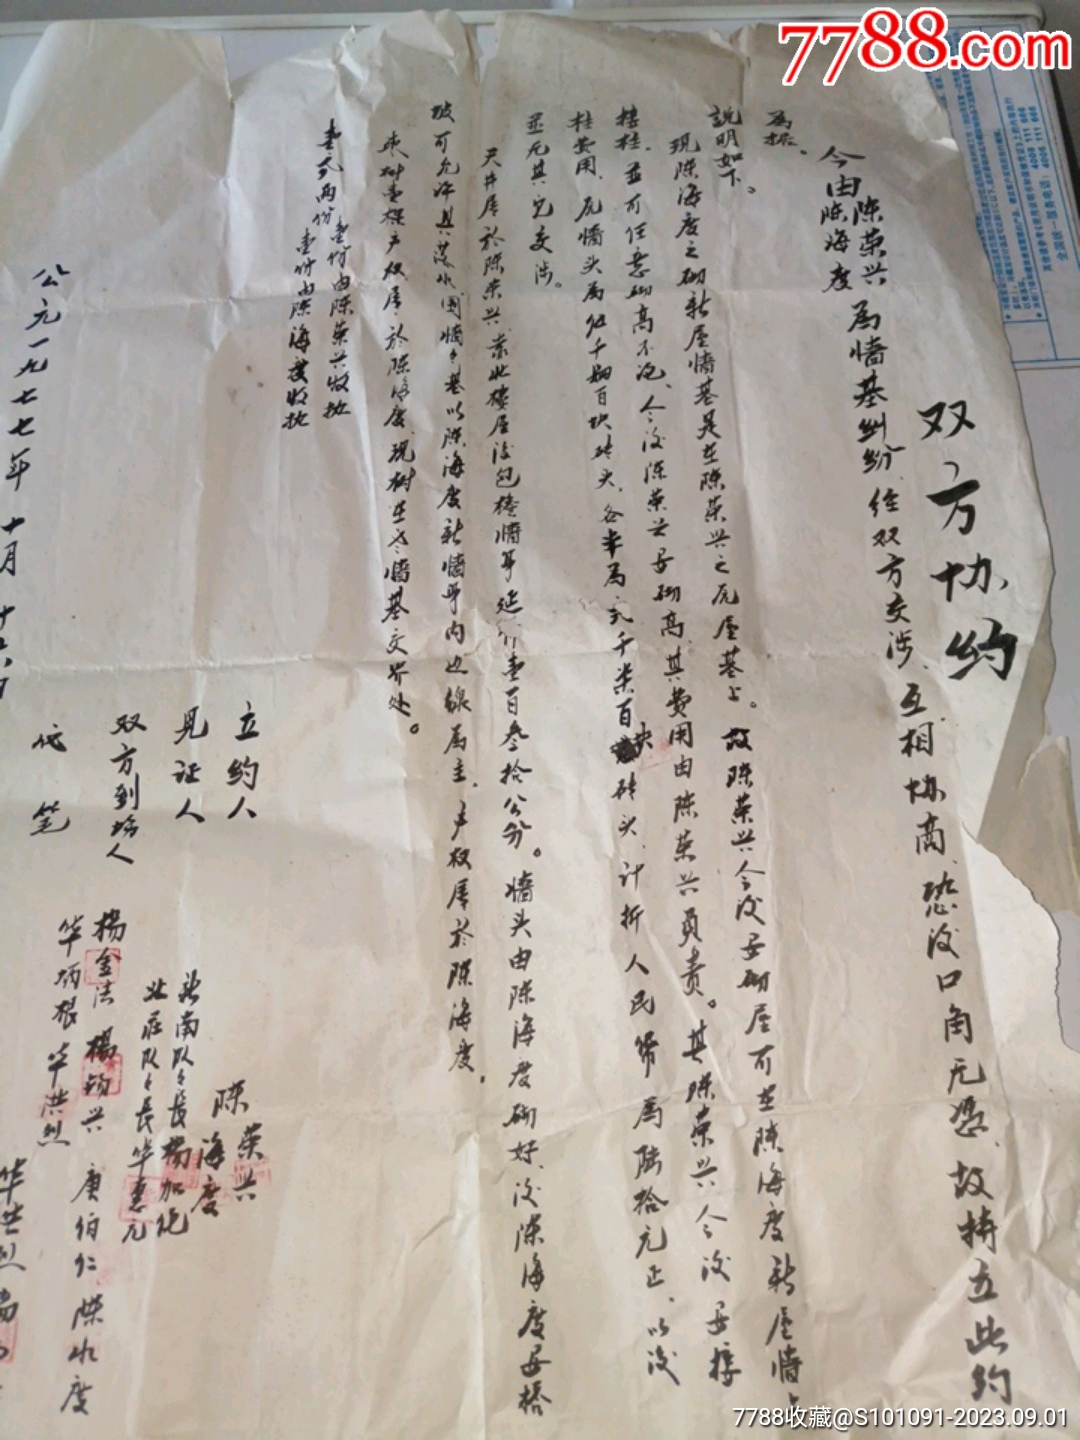 7788.com
双方协约
今由陈荣兴陈海度为墙基纠纷、经双方交涉、互相协商、恐后口角无凭、故特立此约
为据。
说明如下。
现陈海度之砌新屋墙基是在陈荣兴之瓦屋基上。故陈荣兴今后要砌屋可在陈海度新屋墙上
接柱、並可任意砌高不论、今后陈荣兴要砌高、其费用由陈荣兴负责。其陈荣兴今后要接
柱费用、瓦墙头为伍千肆百块砖头、各半为弍千柒百块砖头、计折人民币为陆拾元正、以后
並无其它交涉。
天井属於陈荣兴业北楼屋后包檐墙予延外壹百叁拾公分。墙头由陈海度砌好、后陈海度要搭
披可允许其落水围墙墙基以陈海度新墙予内边线为主、产权属於陈海度。
枣树壹棵产权属於陈海度现树在老墙基交界处。
壹式两份 壹份由陈荣兴收执
壹份由陈海度收执
立约人 陈荣兴
陈海度
见证人 新南队队長 杨加伦
北莊队队長 华惠元
双方到场人 杨金法 杨锡兴 唐伯仁 陈水度
华炳根 华洪烈
代笔 华洪烈
公元一九七七年 十月 十六日
7788收藏@S101091-2023.09.01